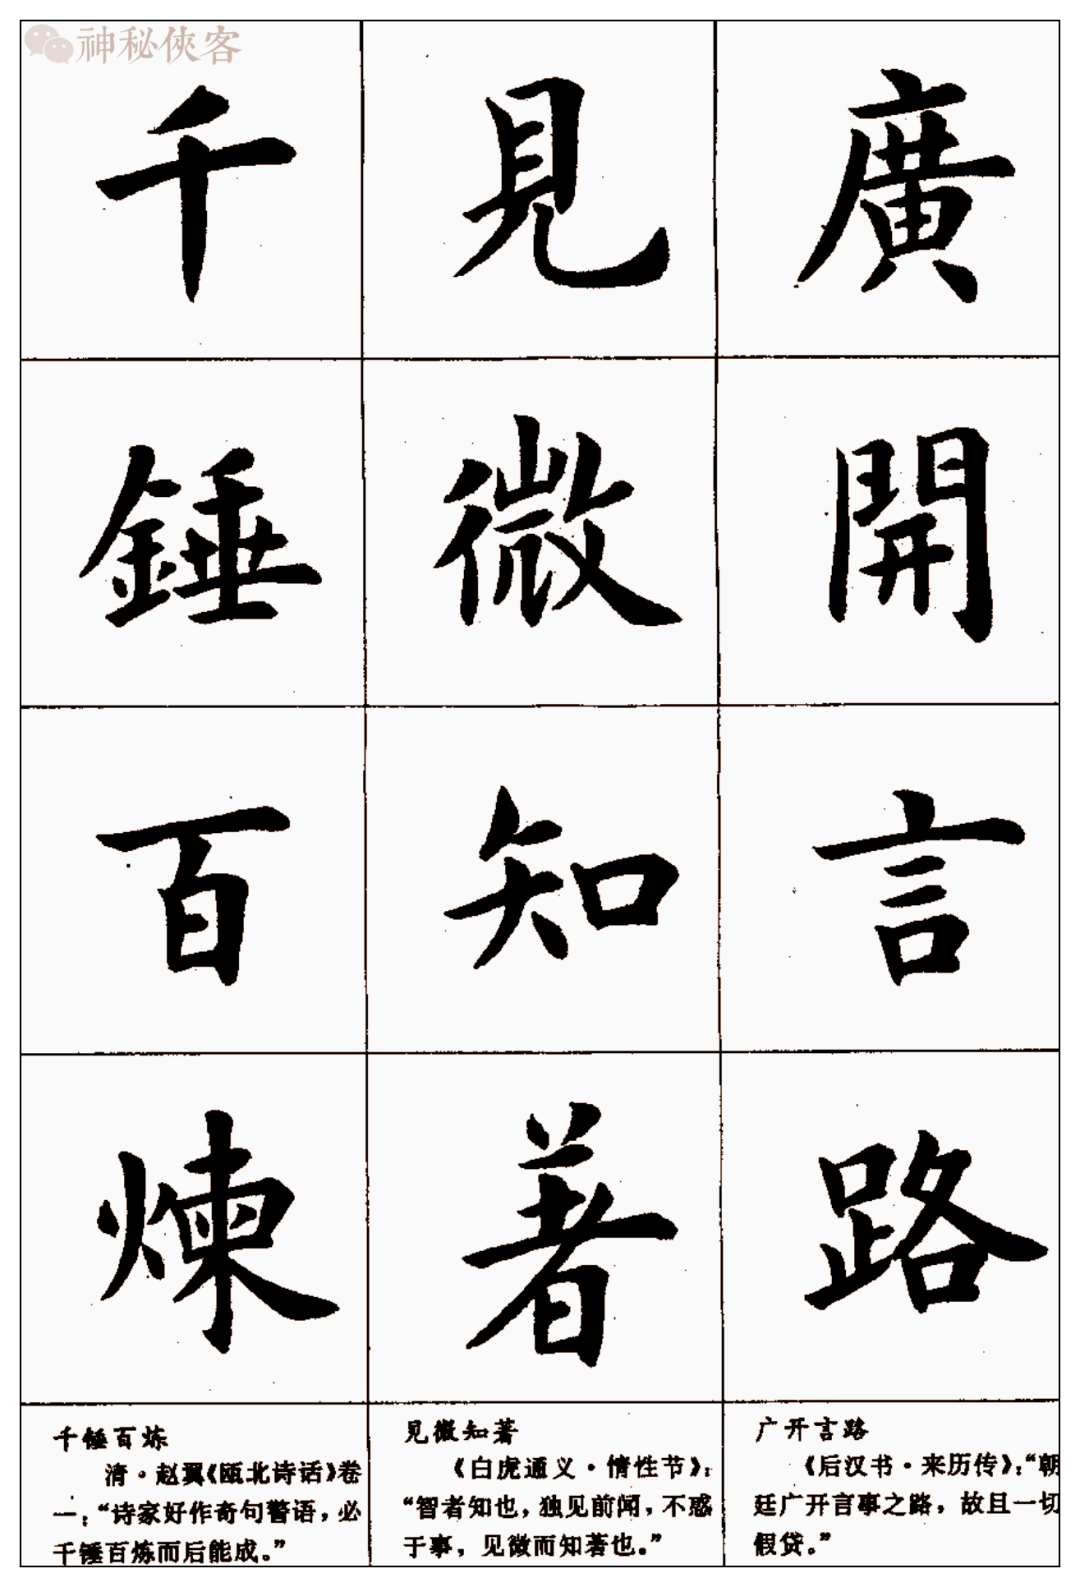 神秘俠客
廣開言路
見微知著
千錘百煉
广开言路
《后汉书·来历传》：“朝
廷广开言事之路，故且一切
假贷。”
见微知著
《白虎通义·情性节》：
“智者知也，独见前闻，不惑
于事，见微而知著也。”
千锤百炼
清·赵翼《瓯北诗话》卷
一：“诗家好作奇句警语，必
千锤百炼而后能成。”